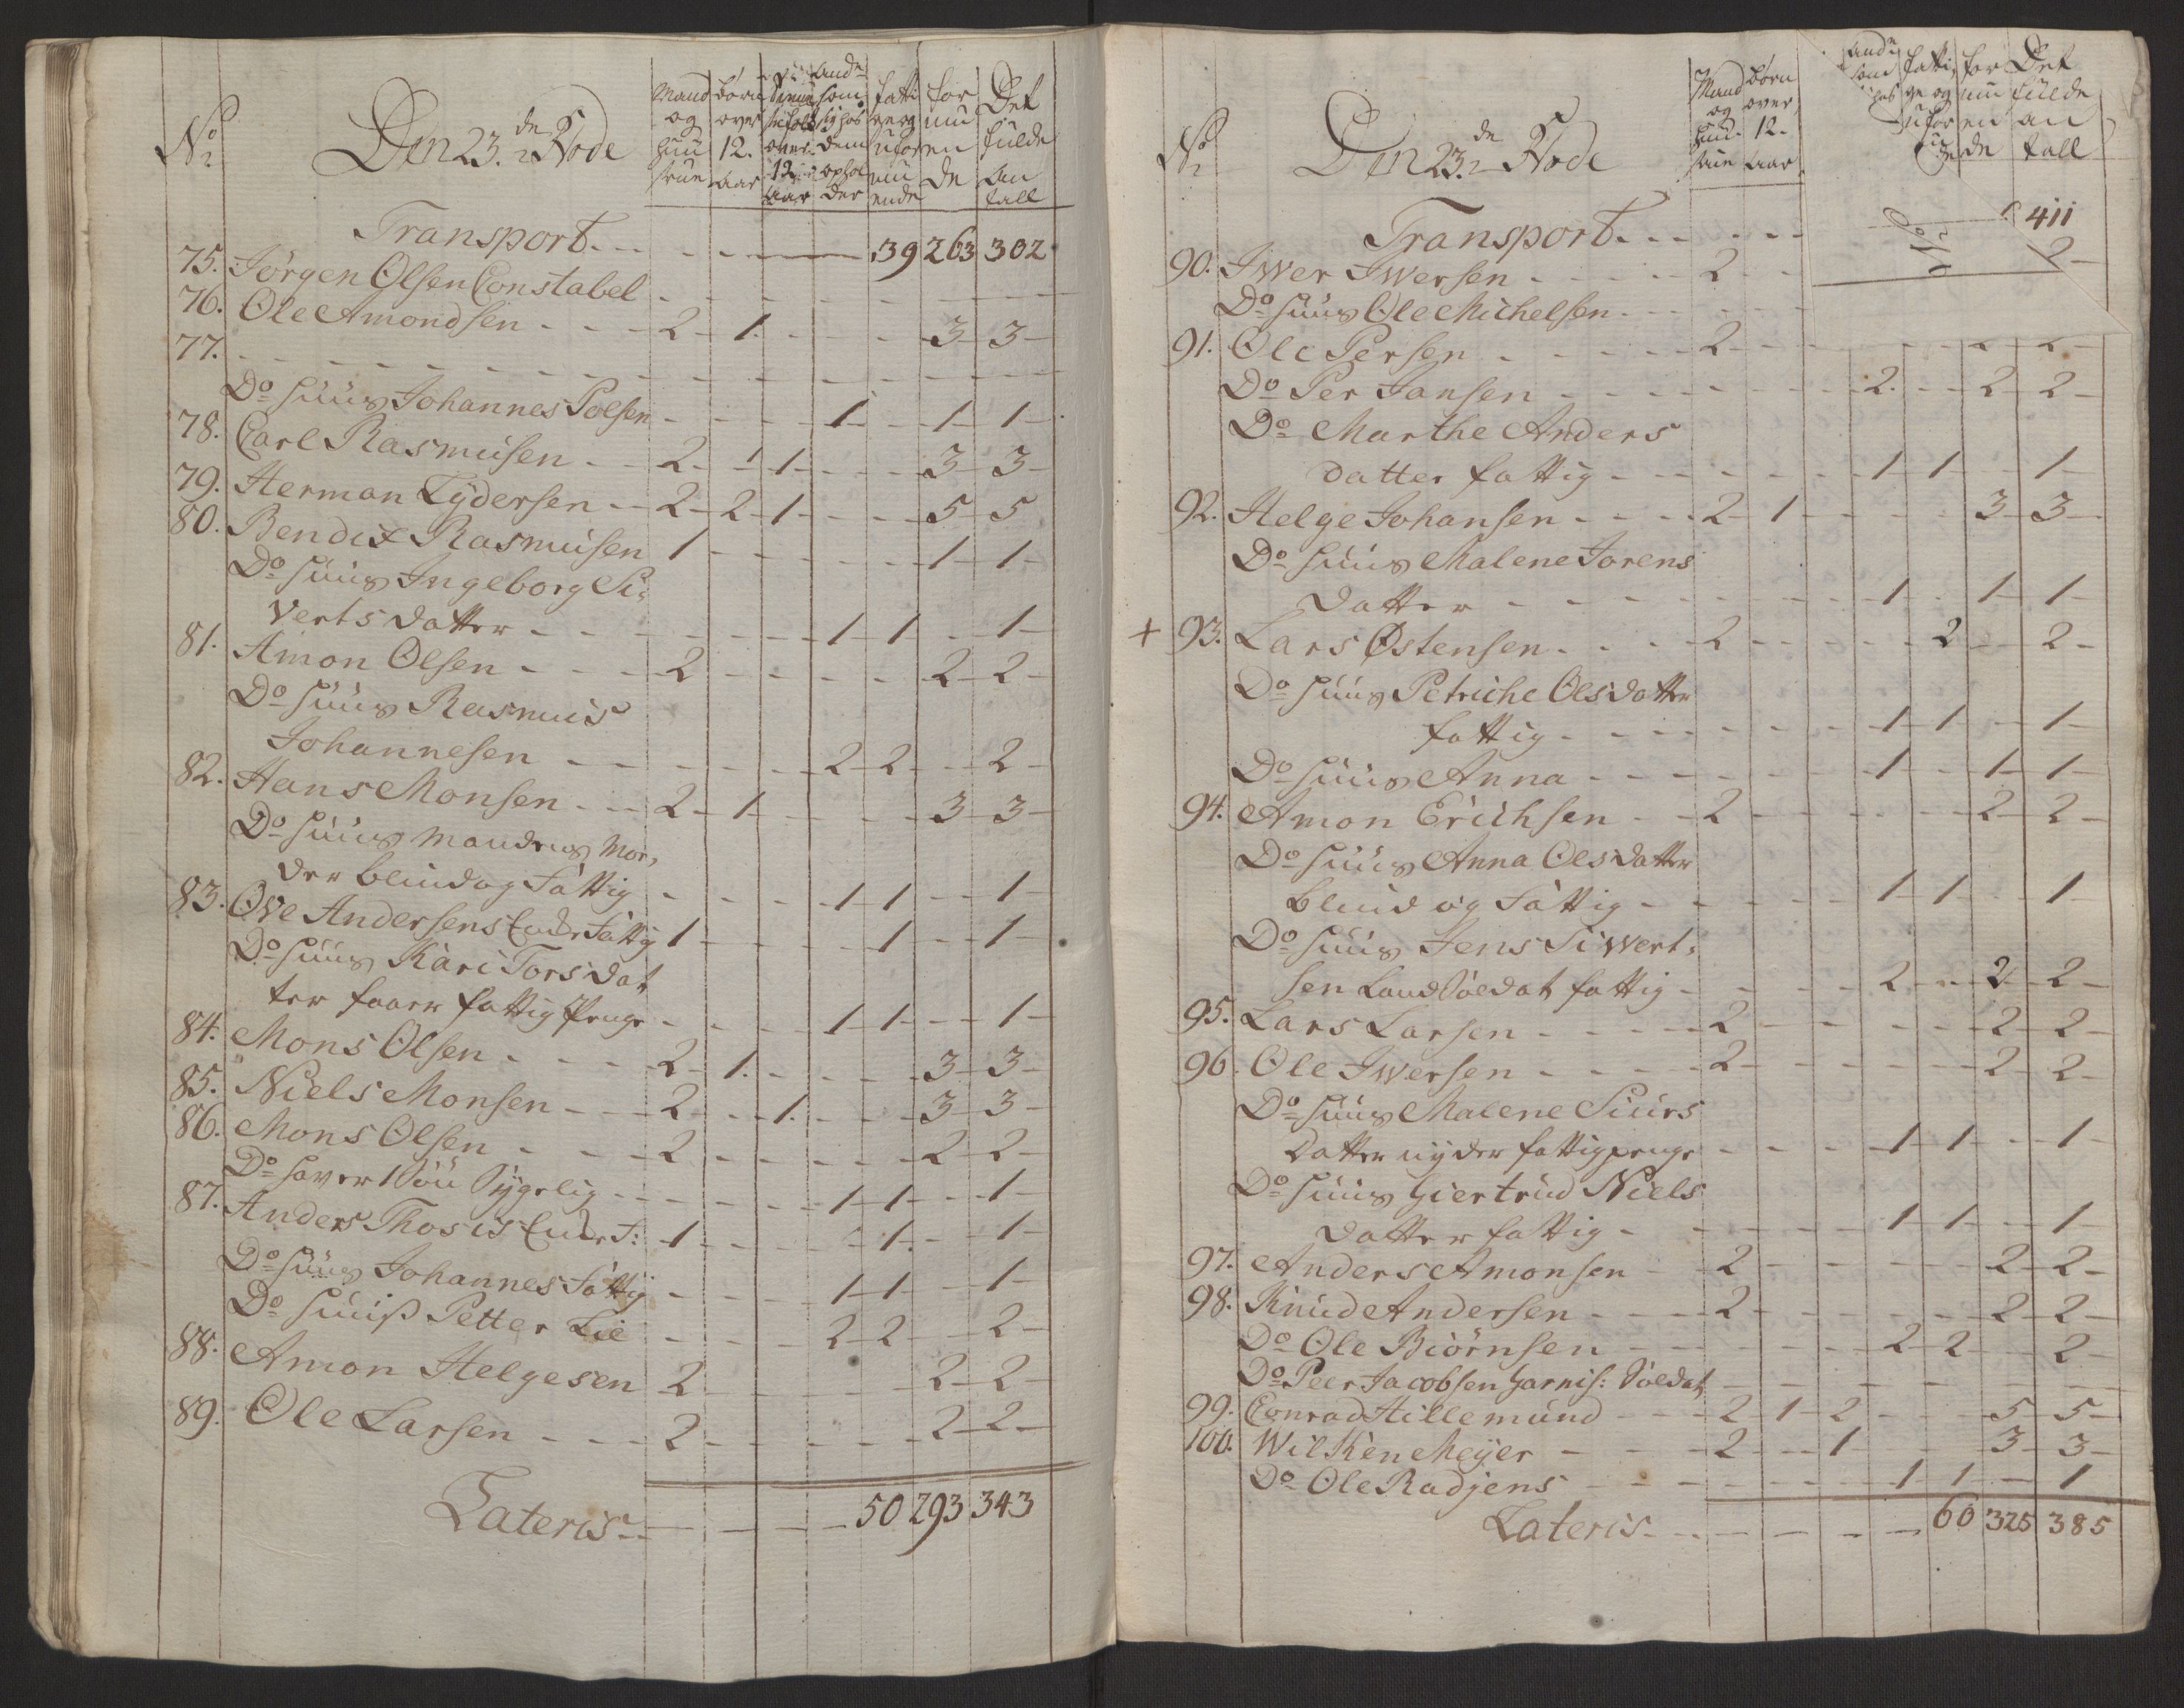 No Den 23.de Rode Mand og Huustrue Børn over 12. Aar over 12 Aar Ande som Sig hos dem ophol der fatti ge og ufor mu ende for mu en de Det fulde An tall
Transport. - - - 39 263 302
75. Jørgen Olsen Constabel - - - - - - -
76. Ole Amondsen - - - 2 - 1. - - - 3 - 3 -
77. - - - - - - - - - -
Do Huus Johannes Polsen - - - 1 - 1 - 1 -
78. Carl Rasmusen - - 2 - 1 - 1 - - - 3 - 3 -
79. Herman Tydersen - - 2 - 2 - 1 - - - 5 - 5
80. Bendix Rasmusen 1 - - - - - 1 - 1 -
Do Huus Ingeborg Si:
verts datter - - - - - 1 - 1 - - 1 -
81. Amon Olsen - - - 2 - - - - 2 - 2 -
Do Huus Rasmus
Johannesen - - - - - 2 - 2 - - 2 -
82. Hans Monsen - - 2 - 1 - - - - 3 - 3 -
Do Huus Mandens Mo-
der blind og Fattig - - - - 1 - 1 - - 1 -
83. Ove Andersens Enke Fattig 1 - - - - 1 - - 1 -
Do Huus Kari Tors dat
ter faaer fattig Penge - - - - 1 - 1 - - 1 -
84. Mons Olsen - - - 2 - 1. - - - - 3 - 3 -
85. Niels Monsen - - - 2 - - 1. - - - 3 - 3 -
86. Mons Olsen - - - 2 - - - - - 2 - 2 -
Do haver 1 Søn Sygelig - - - - 1 - 1 - - 1 -
87. Anders Thosis Enke F: - 1 - - - - 1. - - 1 -
Do Huus Johannes Fattig - - - - 1 - 1 - - 1 -
Do Huus Petter Lie - - - 2 - 2 - - 2 -
88. Amon Helgesen 2 - - - - - 2 - 2 -
89. Ole Larsen - - - 2 - - - - - 2 - 2 -
Lateris - - - - - - 50 293 343
No Den 23.de Rode Mand og Huu- strue Børn over 12. Aar Ande som hos fatti ge og ufor for mu en de Det fulde an tall
Transport. - - - - 411
90. Iwer Iwersen - - - - - 2 - - 2 -
Do Huus Ole Michelsen - - - - -
No
91. Ole Persen - - - - - 2 - - - - - 2 - 2 -
Do Per Jansen - - - - - - - 2. - - 2 - 2 -
Do Marthe Anders
datter fattig - - - - - - 1 - 1 - - 1 -
92. Helge Johansen - - - - 2 - 1 - - - - 3 - 3 -
Do Huus Malene Jorens
datter - - - - - - - - 1 - 1 - 1 -
+ 93. Lars Østensen. - - - 2 - - - - 2 - - 2 -
Do Huus Petriche Olsdatter
fattig - - - - - - - 1 - 1 - - 1 -
Do Huus Anna - - - - - - - 1 - - 1 - 1 -
94. Amon Erichsen - - 2 - - - - - 2 - 2 -
Do Huus Anna Olsdatter
blind og Fattig - - - - - 1 - 1 - - 1 -
Do Huus Jens Siwert:
sen Land Soldat fattig - - - - 2 - - 2 - 2 -
95. Lars Larsen - - - - 2 - - - - - 2 - 2 -
96. Ole Iwersen - - - - 2 - - - - - 2 - 2 -
Do Huus Malene Siurs
datter nyder fattig penge - - - - 1 - 1 - - 1 -
Do Huus Giertrud Niels
datter fattig - - - - - 1 - 1 - - 1 -
97. Anders Amonsen - 2 - - - - - 2 - 2 -
98. Knud Andersen - - - 2 - - - - - 2 - 2 -
Do Ole Biørnsen - - - - - - 2 - 2 - - 2 -
Do Peer Jacobsen Garnis: Soldat - - - - - - -
99. Conrad Hillemund - - - 2 - 1 - 2 - - - 5 - 5 -
100. Wilken Meyer - - - 2 - - 1 - 3 - 3 -
Do Ole Radjens - - - - - - - 1 - 1 - - 1
Lateris - - - - - - 60 325 385